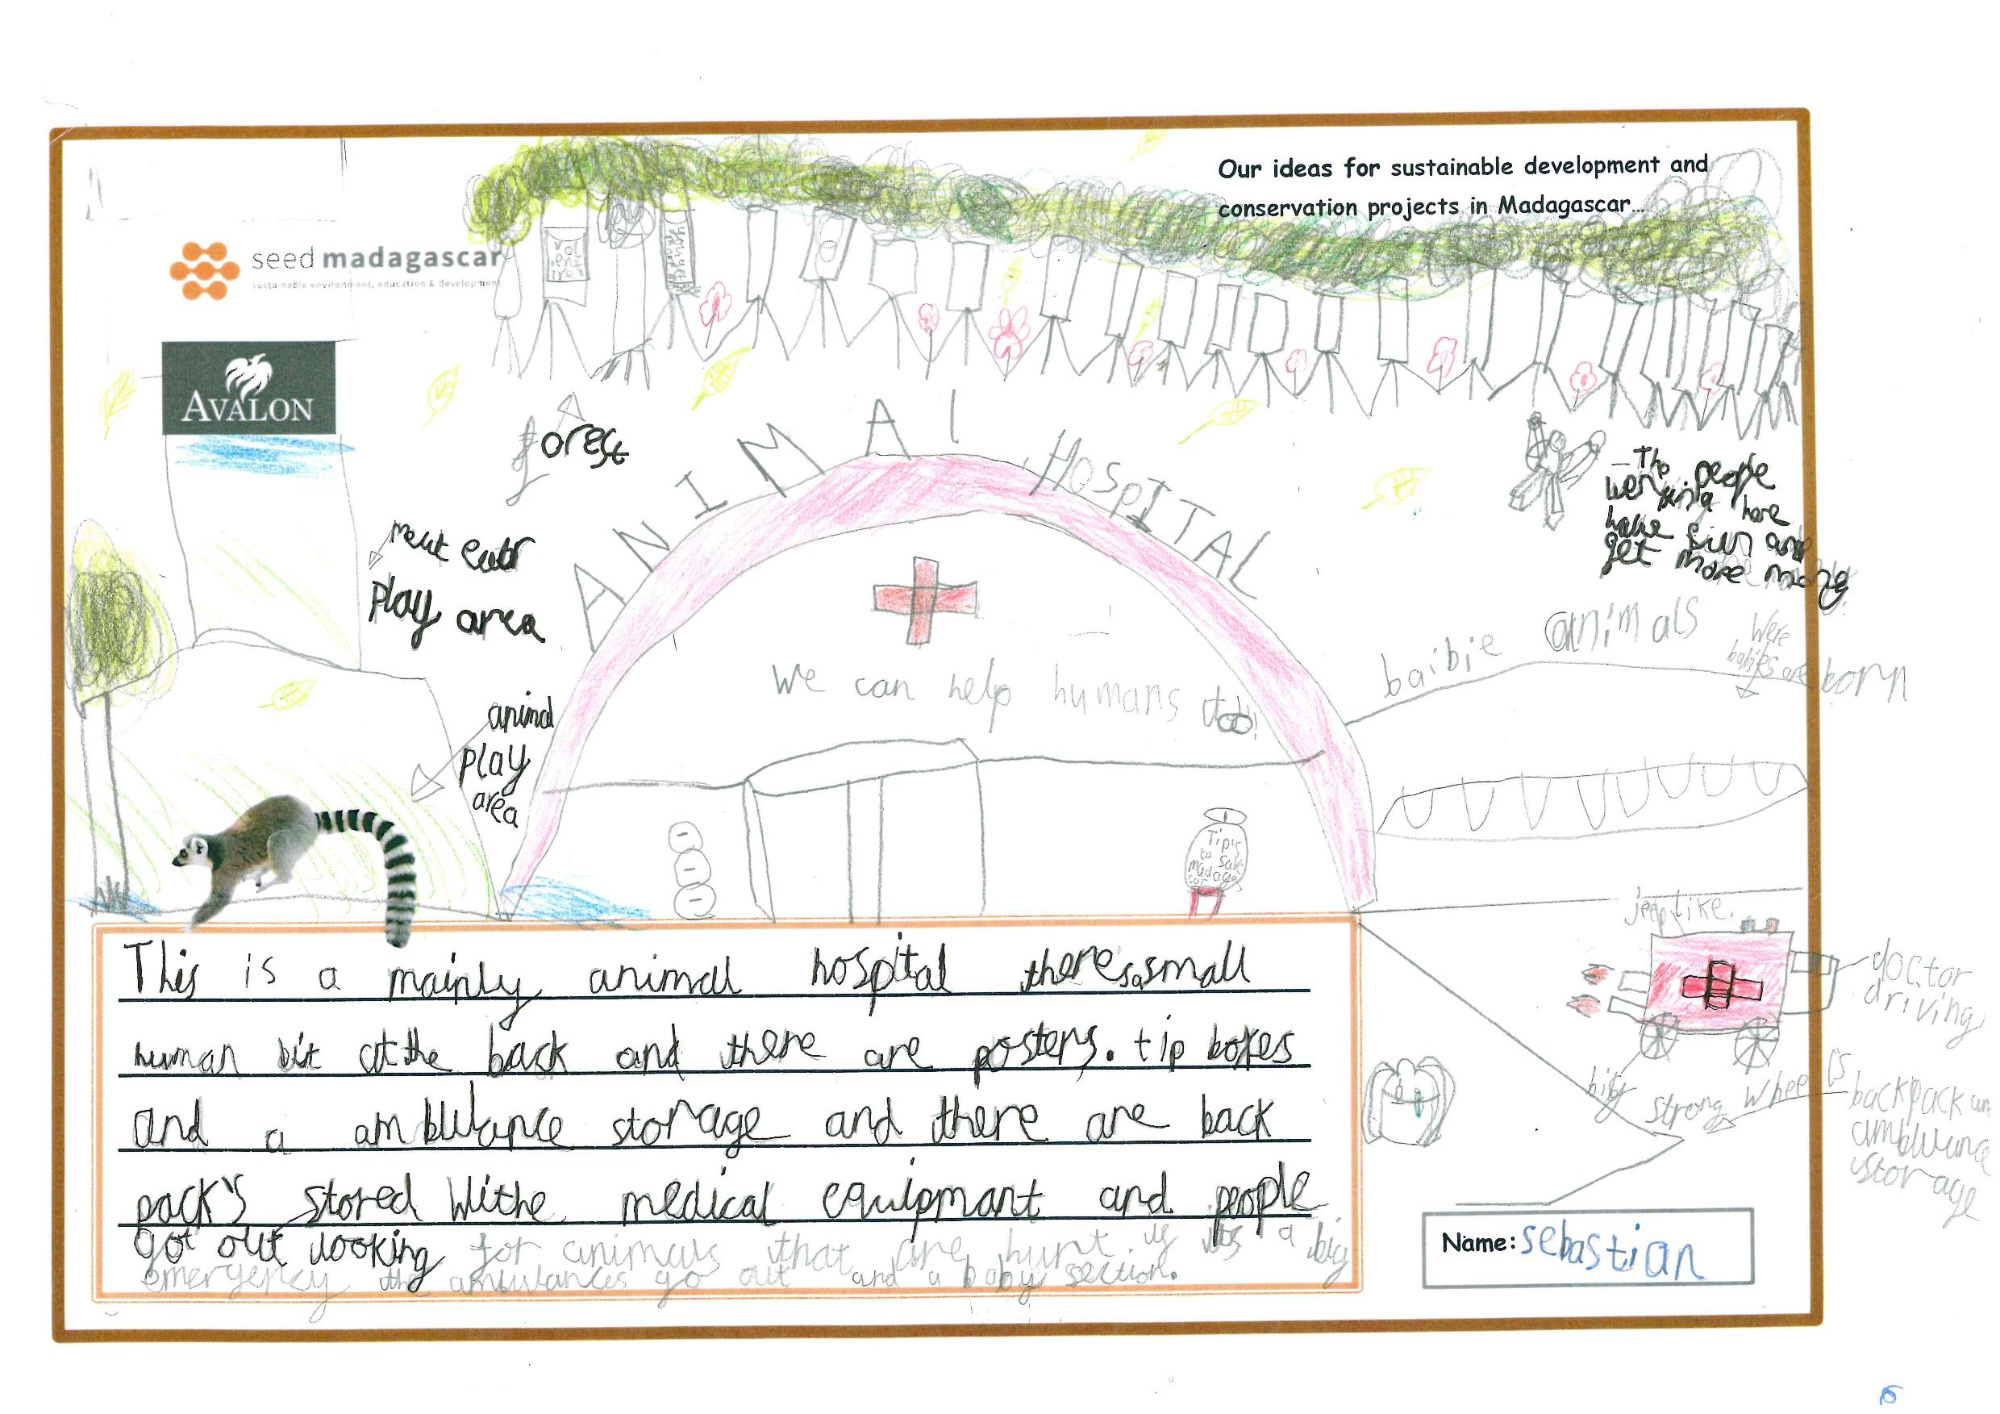 Our ideas for sustainable development and
conservation projects in Madagascar...
seed madagascar
sustainable environment, education & development
AVALON
forest
meat eatr
play area
animal
play
area
ANIMAL HOSPITAL
We can help humans too!
The people
here
have fun and
get more
baibie animals
Were
babies are born
Tip's
to
madagas
car
jeep like.
doctor
driving
big strong wheels
backpack
ambluance
storage
This is a mainly animal hospital theresasmall
human bit at the back and there are posters. tip boxes
and a ambluance storage and there are back
pack's stored withe medical equipmant and people
got out looking for animals that are hurt. if its a big
emergency the ambulances go out and a baby section.
Name: sebastian